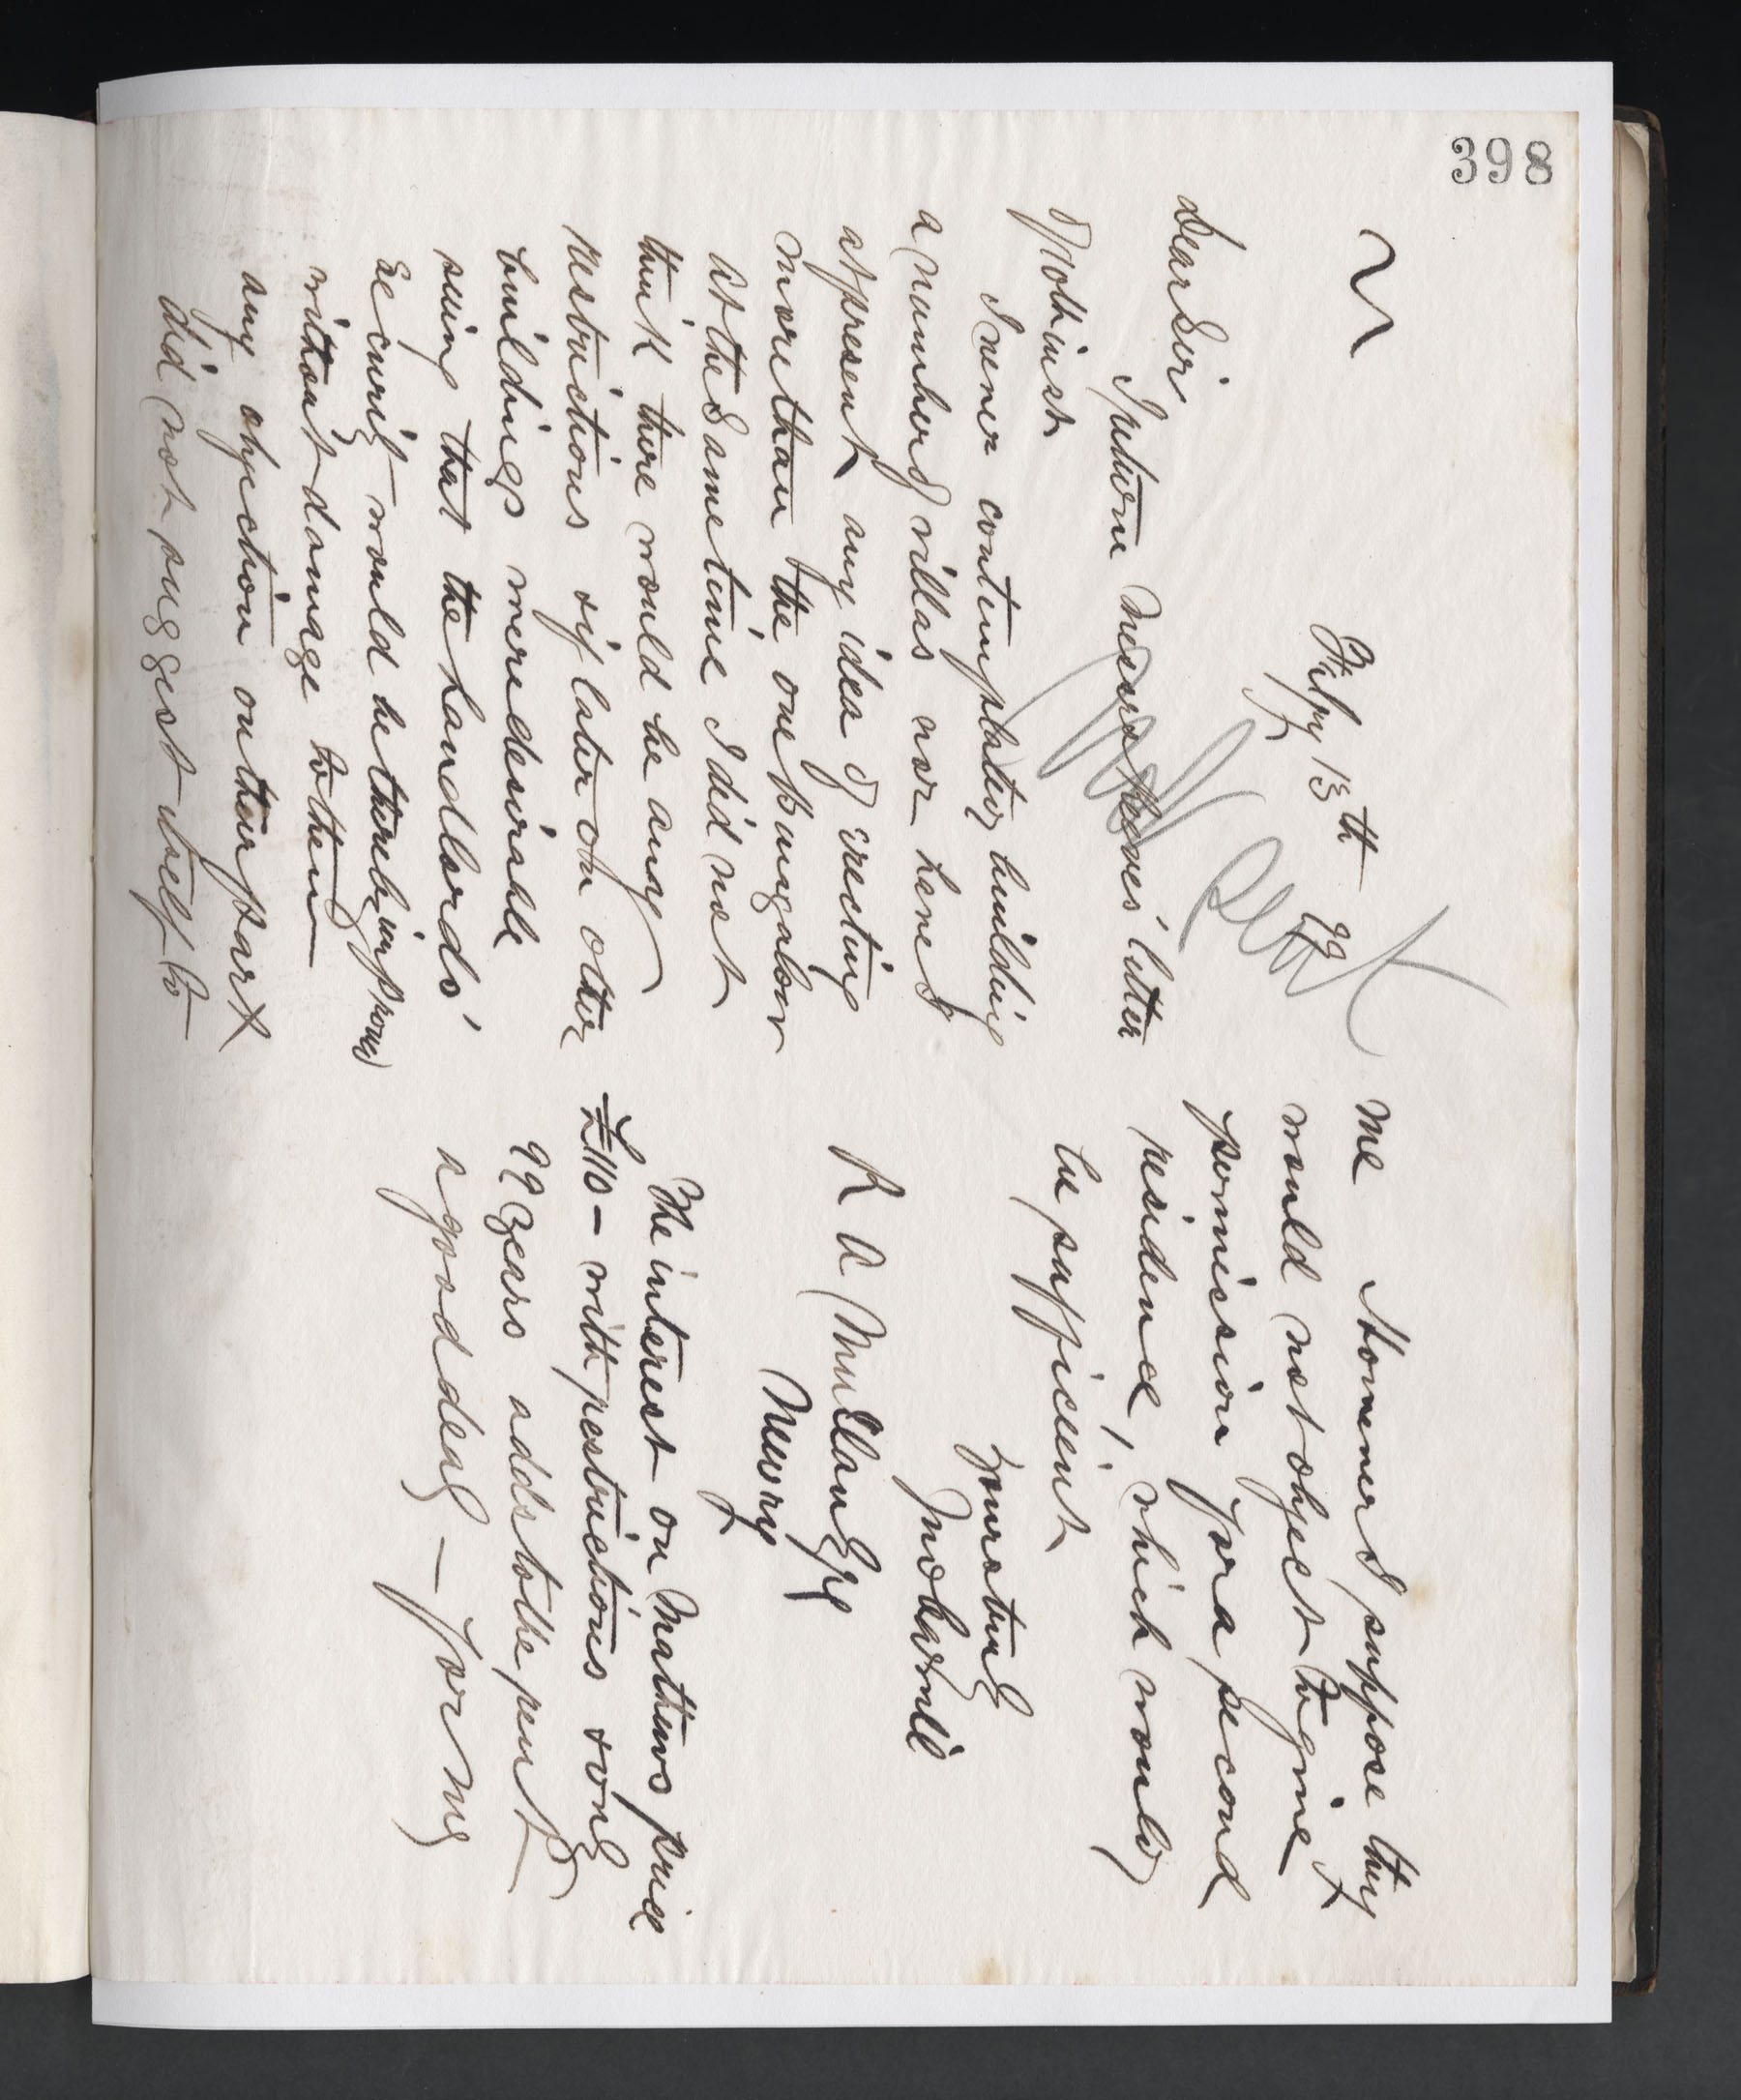 398
Feby 13th 99
Dear Sir
I return Messrs Reeves' letter
of 10th inst
I never contemplated building
a number of villas nor have I
at present any idea of erecting
more than the one bungalow
At the same time I did not
think there would be any
restrictions if later on other
buildings were desirable
seeing that the Landlords'
security would be thereby improved
without damage to them
any objection on their part
did not suggest itself to
me However I suppose they
would not object to give
permission for a second
residence, which would
be sufficient
Yours truly
R A Mullan Esq
Newry
The interest on Mathews price
£110 – with restrictions & only
99 years adds to the rent
a good deal – for my